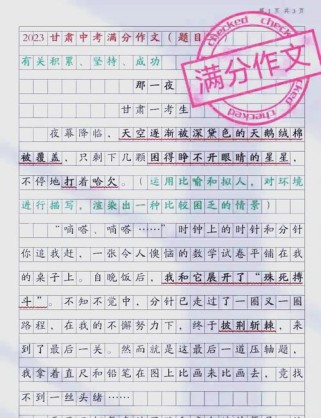 第 1 页 共 3 页
2023 甘肃中考满分作文(题目
有关积累、坚持、成功
checked
满分作文
checked
那一夜
甘肃一考生
夜幕降临，天空逐渐被深黛色的天鹅绒棉
被覆盖，只剩下几颗困得睁不开眼睛的星星，
不停地打着哈欠。（运用比喻和拟人，对环境
进行描写，渲染出一种比较困乏的情景）
“嘀嗒、嘀嗒……”时钟上的时针和分针
你追我赶，一张令人懊恼的数学试卷平铺在我
的桌子上。自晚饭后，我和它展开了“殊死搏
斗”。不知不觉中，分针已走过了一圈又一圈
路程，在我的不懈努力下，终于披荆斩棘，来
到了最后一关。然而就是这最后一道压轴题，
我拿着直尺和铅笔在图上比画来比画去，竟找
不到一丝头绪……